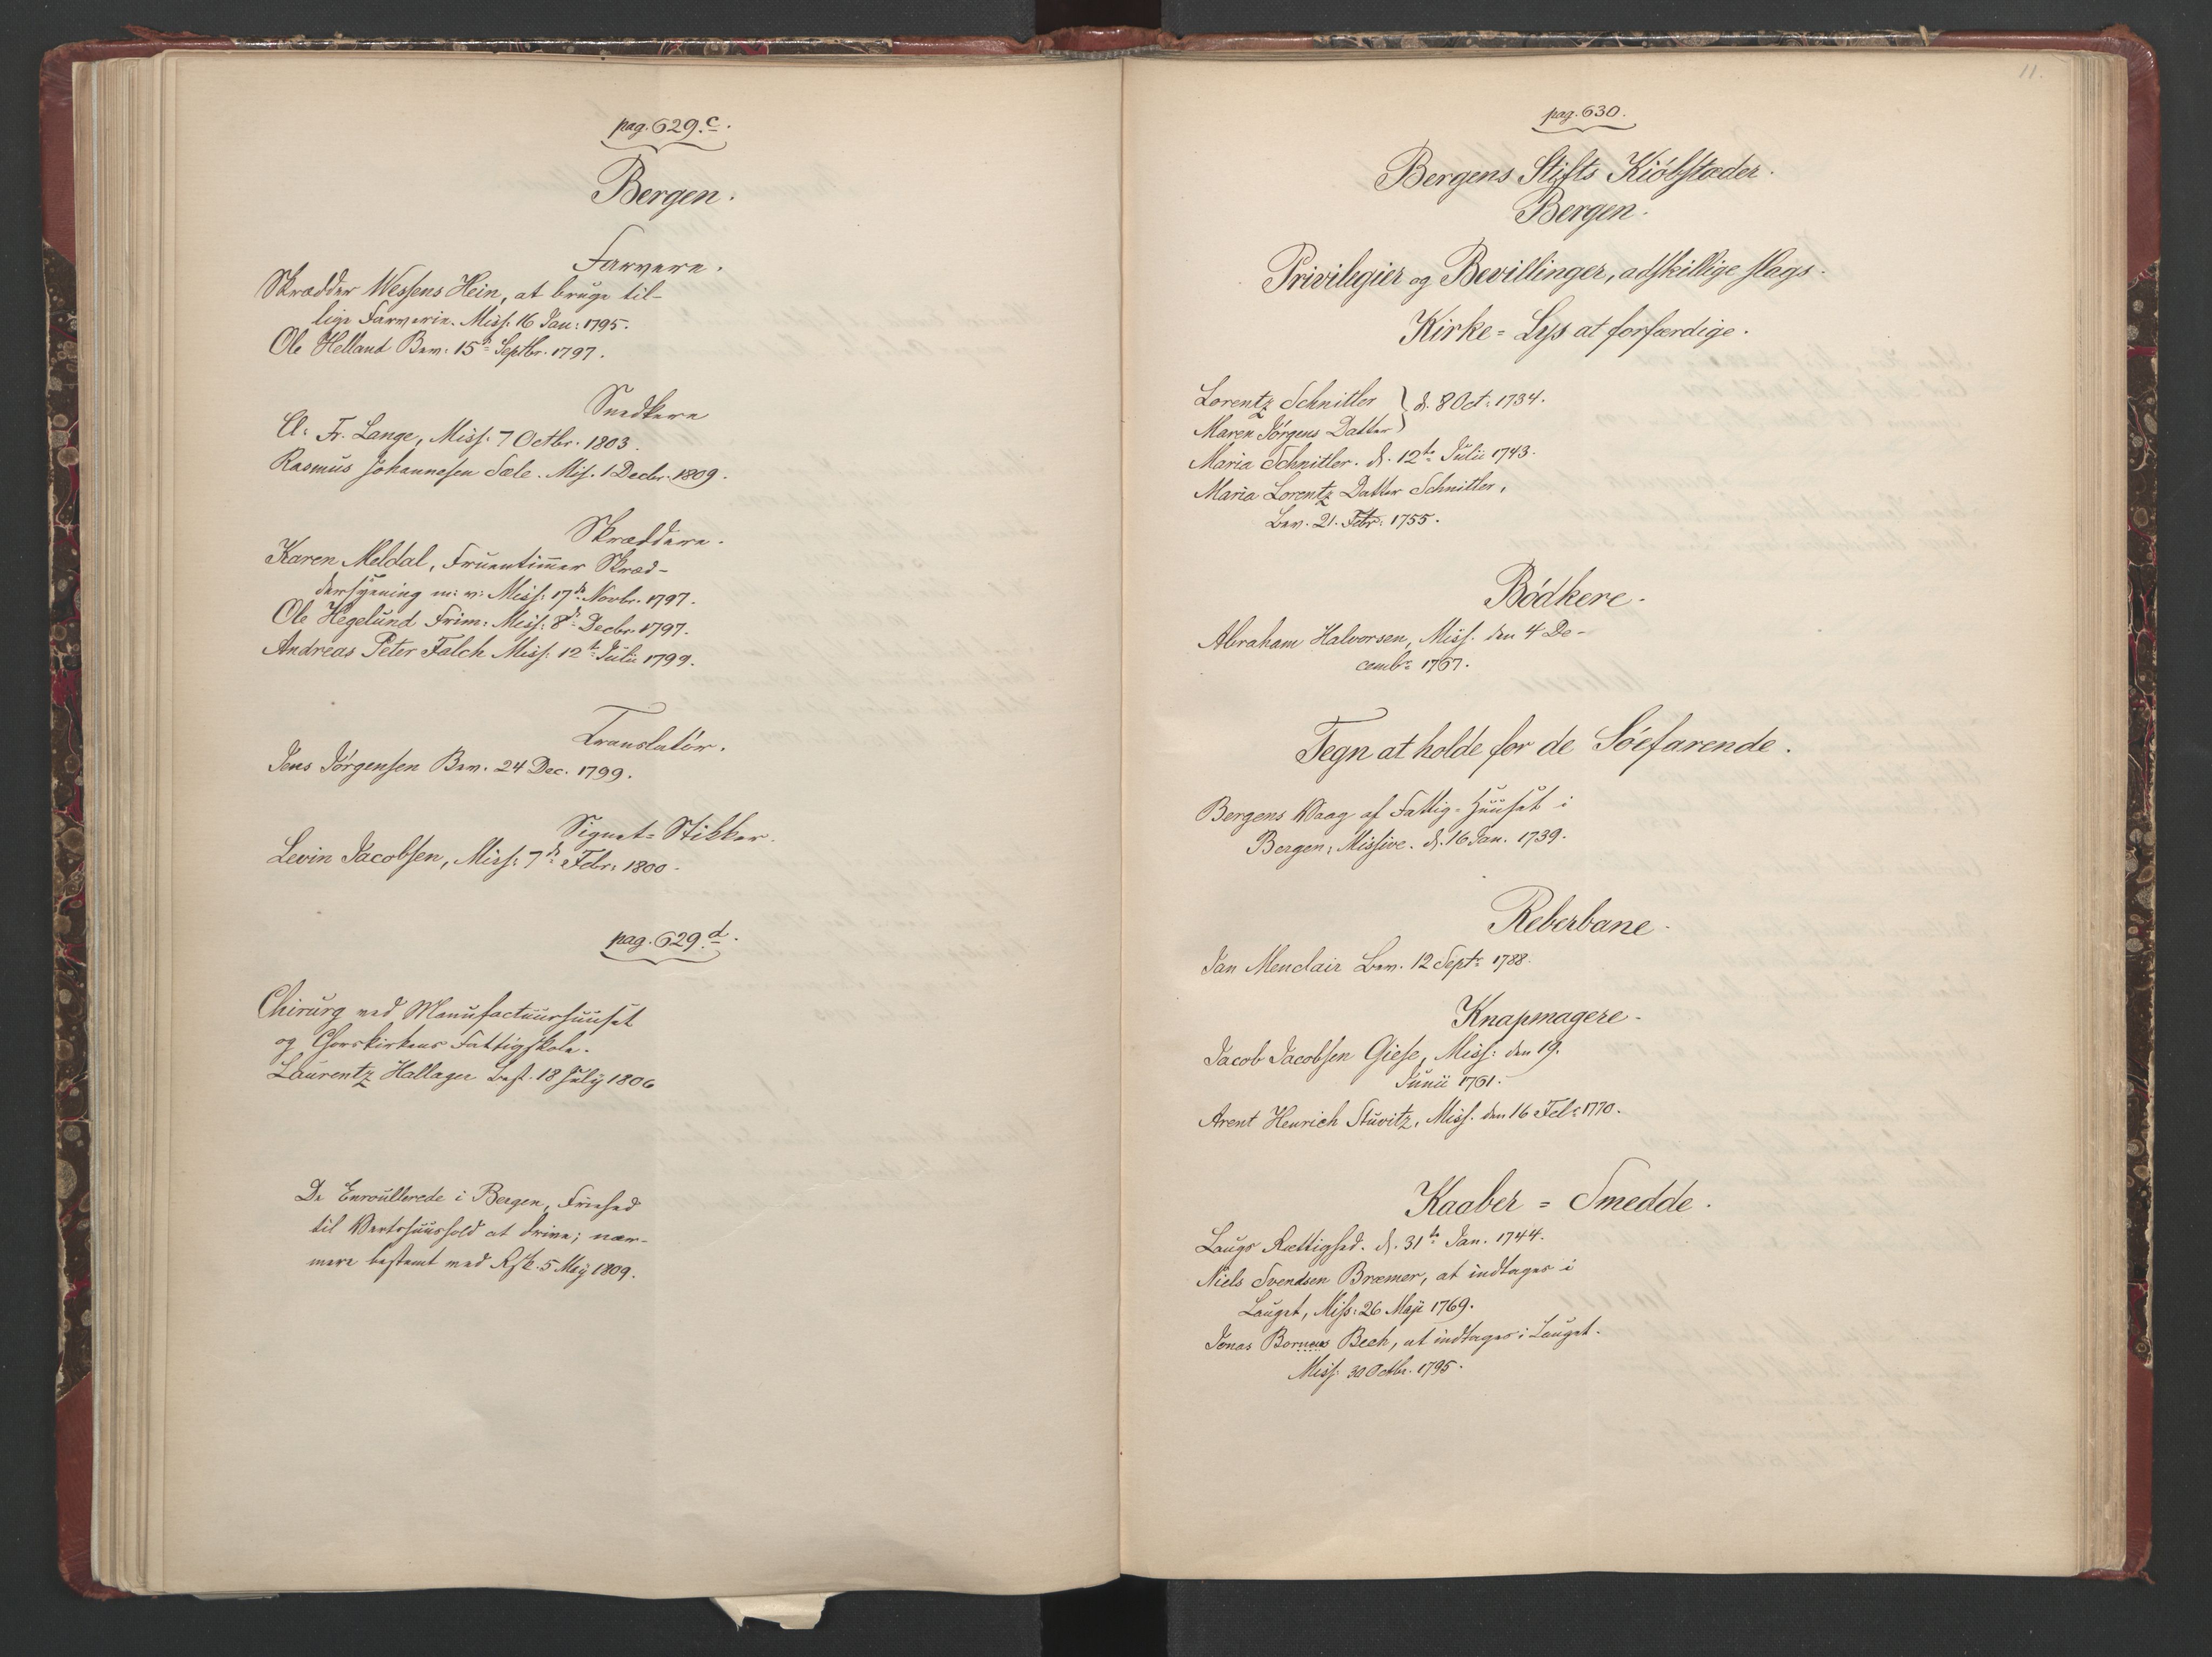 pag. 629.c.
Bergen.
Farvere.
Skrædder Wessens Hein, at bruge til-
lige Farverie. Miss: 16 Jan: 1795.
Ole Helland Bev: 15de Septbr. 1797.
Snedkere
Cl: Fr. Lange, Miss: 7 Octbr. 1803.
Rasmus Johannesen Sæle. Miss. 1 Decbr. 1809.
Skræddere.
Karen Meldal, Fruentimer Skræd-
dersyening m: v: Miss: 17de Novbr. 1797.
Ole Hegelund Frim: Miss: 8de Decbr. 1797.
Andreas Peter Falch Miss: 12te Julii 1799.
Translatör.
Jens Jørgensen Bev. 24 Dec. 1799.
Signet-Stikker.
Levin Jacobsen, Miss: 7de Febr: 1800.
pag. 629.d.
Chirurg ved Manufactuurhuuset
og Chorskirkens Fattigskole.
Laurentz Hallager best. 18 July 1806
De Enroullerede i Bergen, Friehed
til Vertshuushold at drive; nær-
mere bestemt med Rsk. 5 Maÿ 1809.
11.
pag. 630.
Bergens Stifts Kiöbstæder.
Bergen.
Privilegier og Bevillinger, adskillige slags.
Kirke=Lys at forfærdige.
Lorentz Schnitler } d. 8 Oct: 1734.
Maren Jörgens Datter
Maria Schnitler. d. 12te Julii 1743.
Maria Lorentz Datter Schnitler,
Bev. 21. Febr: 1755.
Bödkere.
Abraham Halvorsen, Miss. den 4 De-
cembr 1767.
Tegn at holde for de Söefarende.
Bergens Vaag af Fattig-Huuset i
Bergen: Missive. d. 16 Jan. 1739.
Reberbane.
Jan Menclair Bev. 12 Sept: 1788.
Knapmagere.
Jacob Jacobsen Giese, Miss: den 19.
Junii 1761.
Arent Henrich Stuvitz, Miss. den 16 Feb: 1770.
Kaaber = Smedde.
Laugs Rettighed. d. 31te Jan. 1744.
Niels Svendsen Bræmer, at indtages i
Lauget, Miss: 26 Maji 1769.
Jonas Borneus Bech, at indtages i Lauget.
Miss. 30 Octbr. 1795.